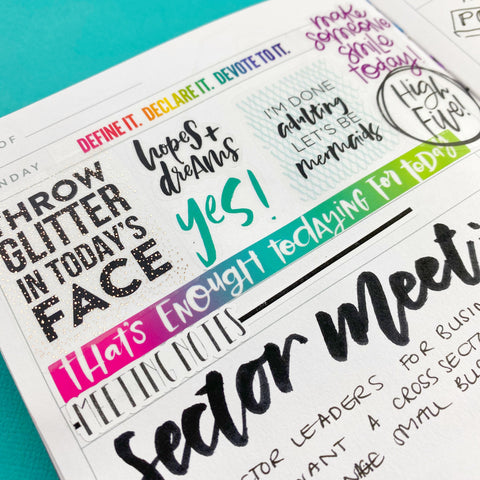 OF
NDAY
DEFINE IT. DECLARE IT. DEVOTE TO IT.
make
someone
smile
today!
PO
High
Five!
hopes +
dreams
yes!
I'M DONE
adulting
LET'S BE
mermaids
THROW
GLITTER
IN TODAY'S
FACE
THAT'S ENOUGH TODAYING FOR TODAY
MEETING NOTES
Sector meeti
CTOR LEADERS FOR BUSIN
WANT A CROSS SECT
SMALL BU